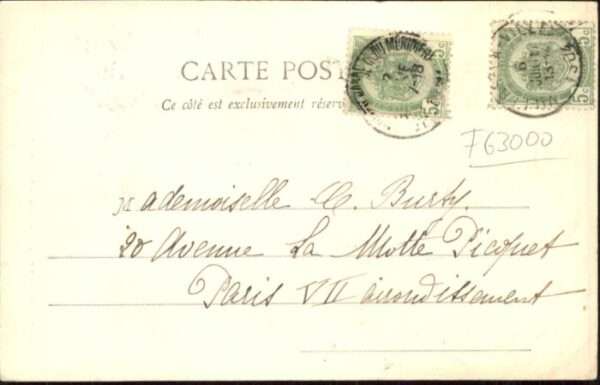 CARTE POST
Ce côté est exclusivement réserv
F63000
Mademoiselle C. Burty.
20 Avenue La Motte Picquet
Paris VII arrondissement